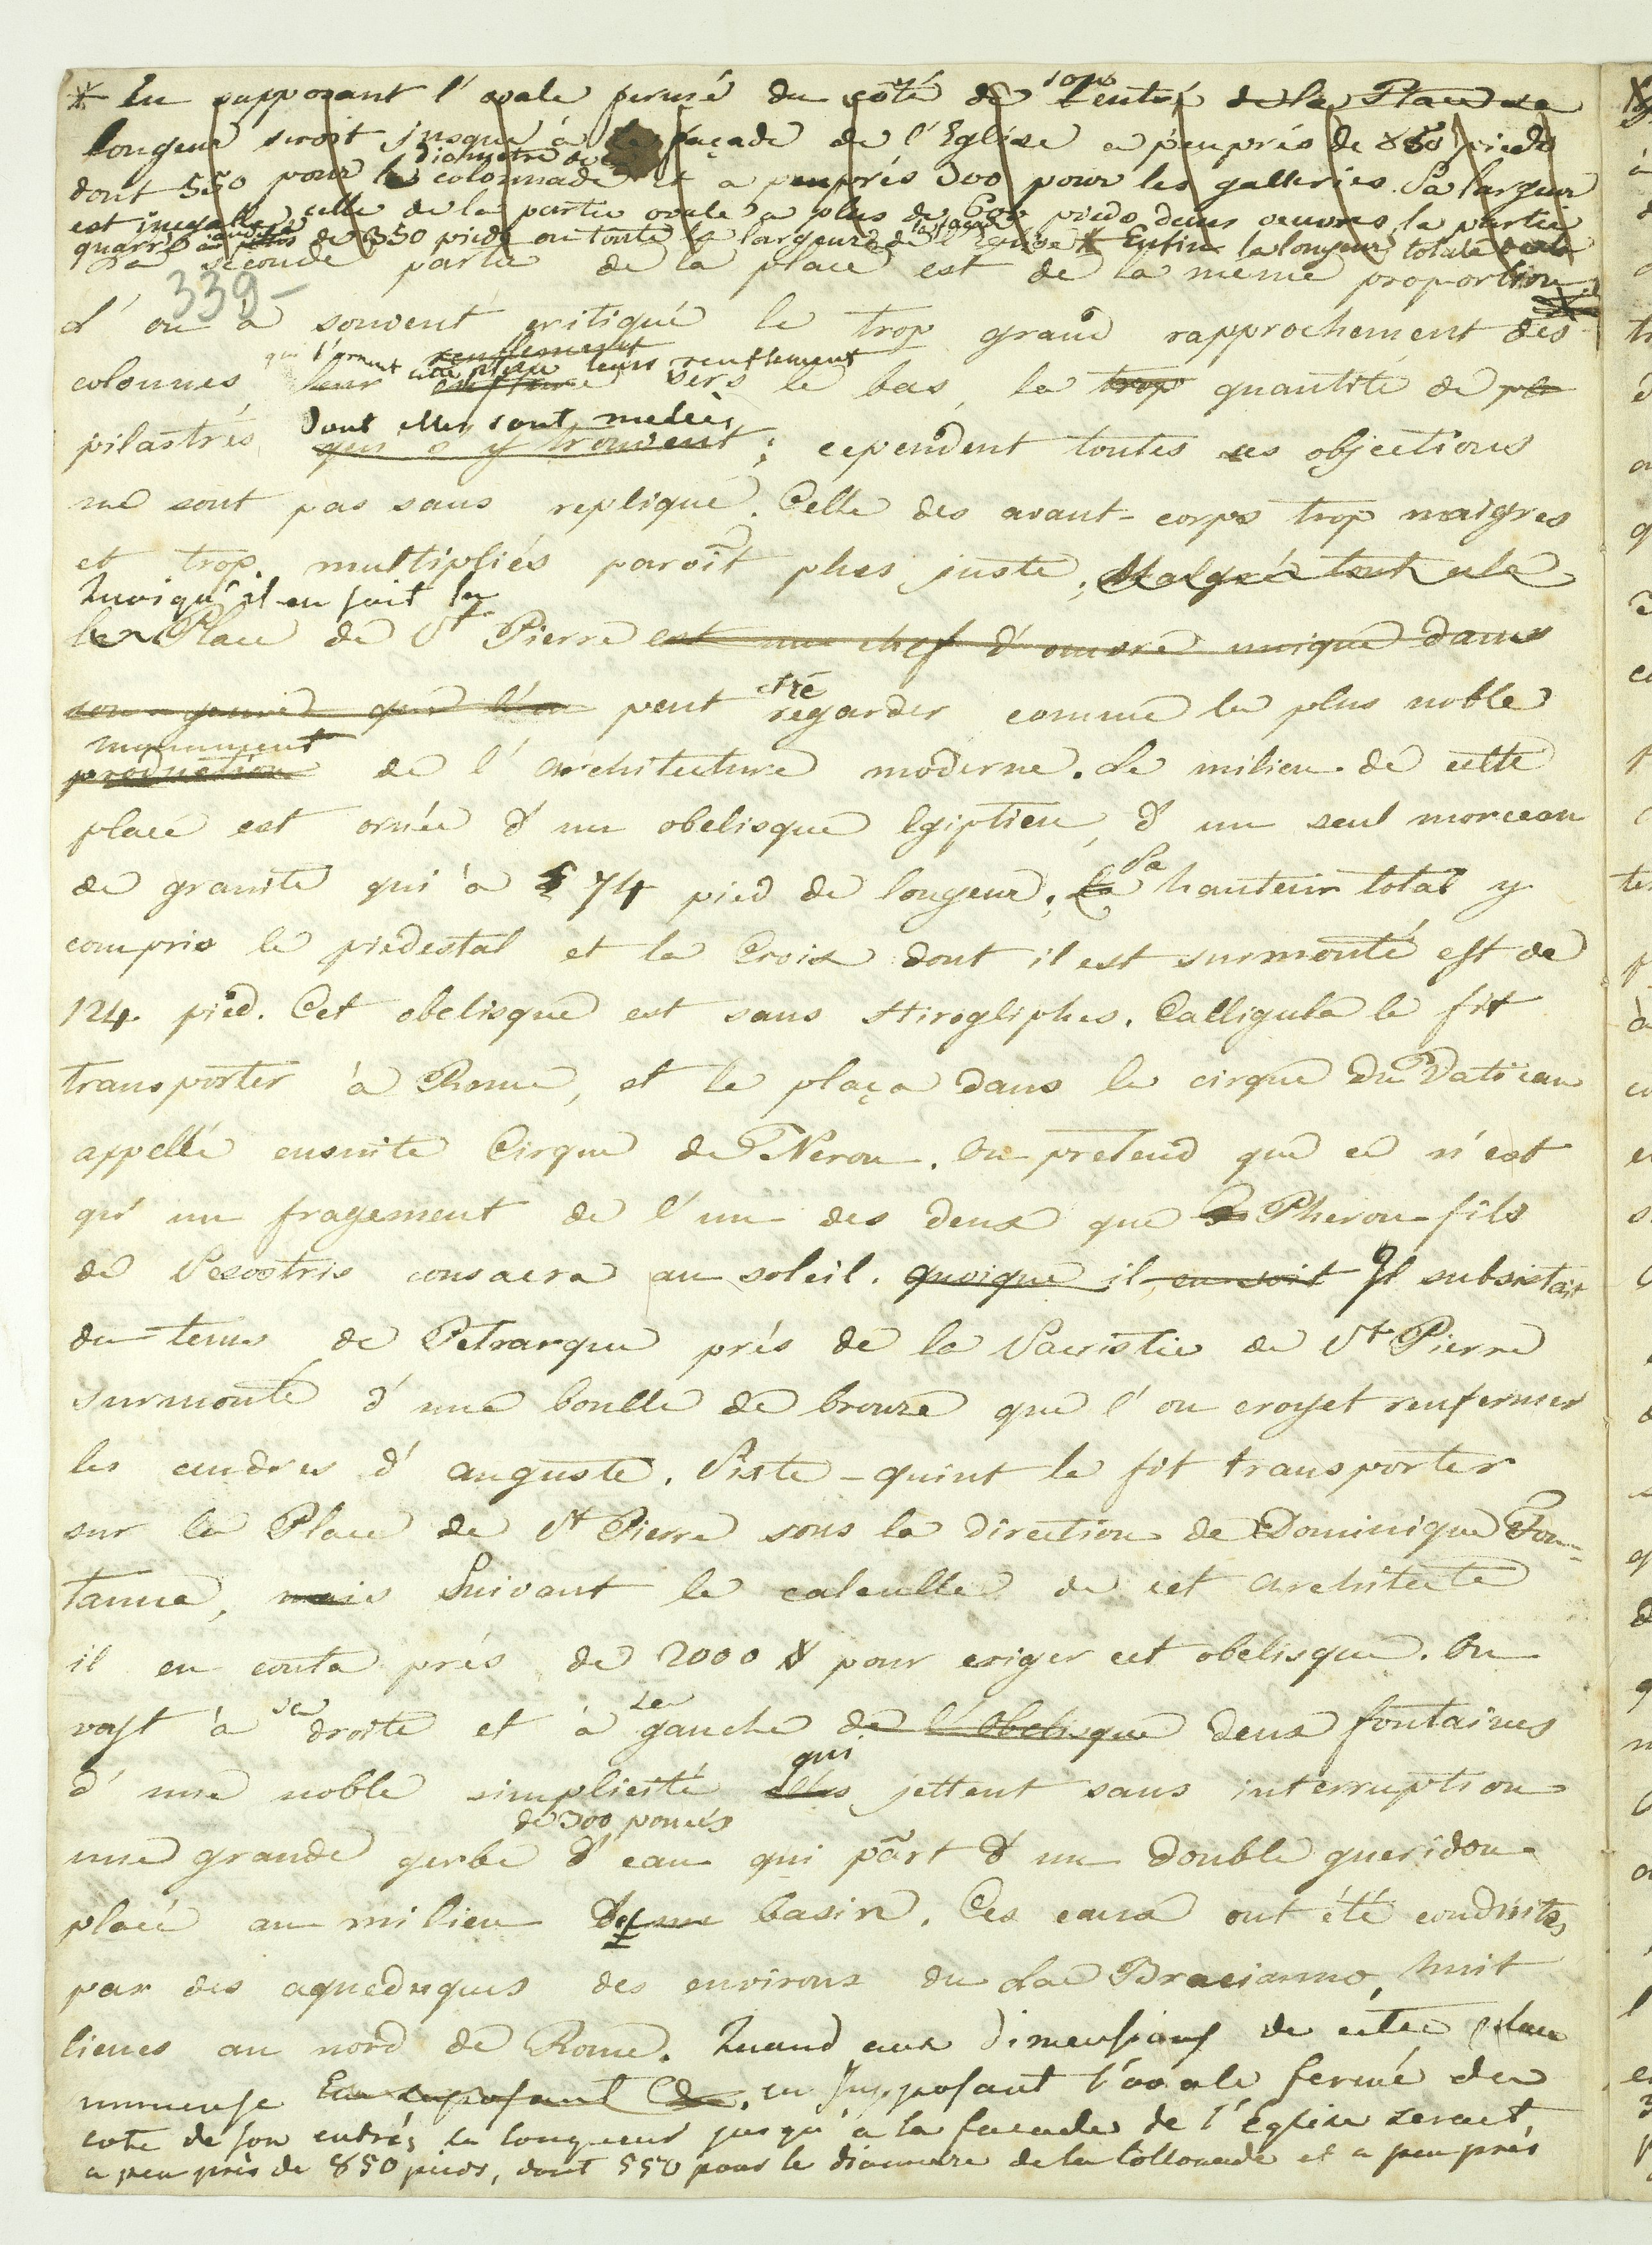 * En supposant l'ovale fermé du côté de son l'entré de la Place sa
longeur seroit jusque à la façade de l'Eglise a peuprés de 850 pieds
dont 550 pour le diametre de la colonnade et a peuprés 300 pour les galleries. Sa largeur
est inegalle celle de la partie ovale a plus de pieds deux oeuvres, la partie
quarré de 350 pieds ou toute la largeur de la façade de l'Eglise * Enfin la longeur totale
La seconde partie de la place est de la même proportion
339-
L'on a souvent critiqué le trop grand rapprochement des
qui l'ornent renflement leurs renflement
colonnes, leur vers le bas, la trop quantité de pi
dont elles sont melées
pilastres, qui s'y trouvent; cependent toutes ces objections
ne sont pas sans replique. Celle des avant-corps trop maigres
et trop multipliés paroît plus juste. Malgrée tout cela
Quoiqu'il en soit la
la Place de St Pierre est une chef d'ouvre unique dans
son genre que l'on peut etre regarder comme le plus noble
monument
production de l'architecture moderne. Le milieu de cette
place est ornée d'un obelisque Egiptien, d'un seul morceau
de granite qui a 74 pied de longeur, la Sa hauteur total y
compris le piedestal et la Croix dont il est surmonté est de
124 pied. Cet obelisque est sans Hirogliphes. Calligula le fit
transporter à Rome, et le plaça dans le cirque du Vatican
appellé ensuite Cirque de Neron. On pretend que ce n'est
qu'un fragement de l'un des deux que Pheron fils
de Sesostris consacra au soleil. quoique il en soit Il subsistait
du tems de Petrarque prés de la Sacristie de St Pierre
surmonté d'une boulle de bronze que l'on croyet renfermer
les cendres d'auguste. Sixte-quint le fit transporter
sur la Place de St Pierre sous la direction de Dominique Fon-
tanne, mais Suivant le calculle de cet architecte
il en couta prés de 2000 # pour eriger cet obelisque. On
voyt à sa droite et à sa gauche de l'Obelisque deux fontaines
d'une noble simplicité elles qui jettent sans interruption
de 300 poucés
une grande gerbe d'eau qui pärt d'un double gueridon
placé au milieu d'un basin. Ces eaux ont été conduites
par des aqueduques des environs du Lac Bracianno, huit
lieues au nord de Rome. Quand aux dimensions de cette place
immense En suposant, en supposant l'ovale fermé du
coté de son entrés sa longueur jusqu'a la facade de l'Eglise serait
a peu près de 850 pieds, dont 550 pour le diametre de la Collonade et a peu près